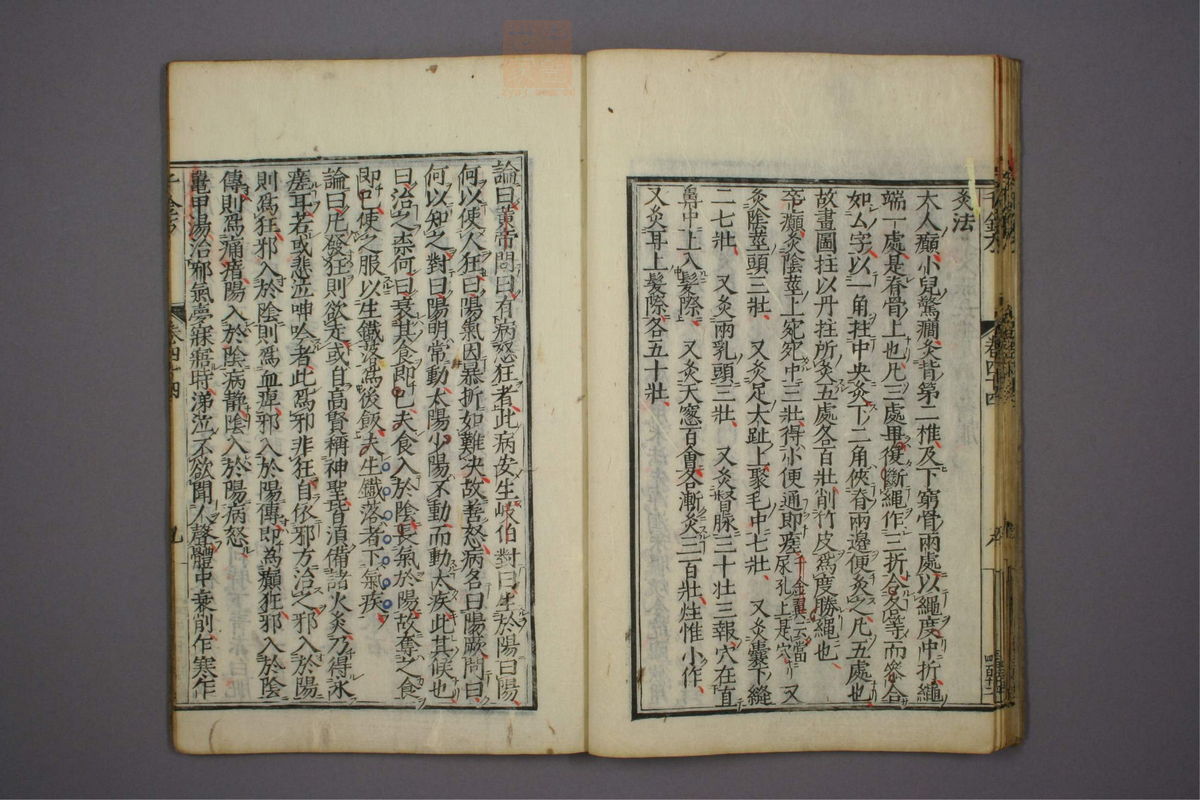 灸法
大人癲小兒驚癇灸背第二椎及下窮骨兩處以繩度中折繩
端一處是脊骨上也凡三處畢復斷繩作三折令各等而參合
如厶字以一角拄中央灸下二角俠脊兩邊便灸之凡五處也
故畫圖拄以丹拄所灸五處各百壯削竹皮為度勝繩也
卒癲灸陰莖上宛宛中三壯得小便通即瘥千金翼云當尿孔上是穴又
灸陰莖頭三壯 又灸足大趾上聚毛中七壯 又灸囊下縫
二七壯 又灸兩乳頭三壯 又灸督脉三十壯三報穴在直
鼻中上入髮際 又灸天窻百會各漸灸三百壯炷惟小作
又灸耳上髮際各五十壯
卷四十四
九
論曰黃帝問曰有病怒狂者此病安生岐伯對曰生於陽曰陽
何以使人狂曰陽氣因暴折如難決故善怒病名曰陽厥問曰
何以知之對曰陽明常動太陽少陽不動而動大疾此其候也
曰治之柰何曰衰其食即已夫食入於陰長氣於陽故奪之食
即已使之服以生鐵落為後飯夫生鐵落者下氣疾
論曰凡發狂則欲走或自高賢稱神聖皆須備諸火灸乃得永
瘥耳若或悲泣呻吟者此為邪非狂自依邪方治之邪入於陽
則為狂邪入於陰則為血痺邪入於陽傳即為癲狂邪入於陰
傳則為痛瘖陽入於陰病静陰入於陽病怒
鼈甲湯治邪氣夢寐寤時涕泣不欲聞人聲體中痠削乍寒乍
卷四十四
九